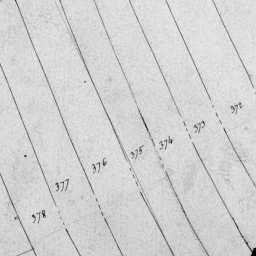 372
373
374
375
376
377
378